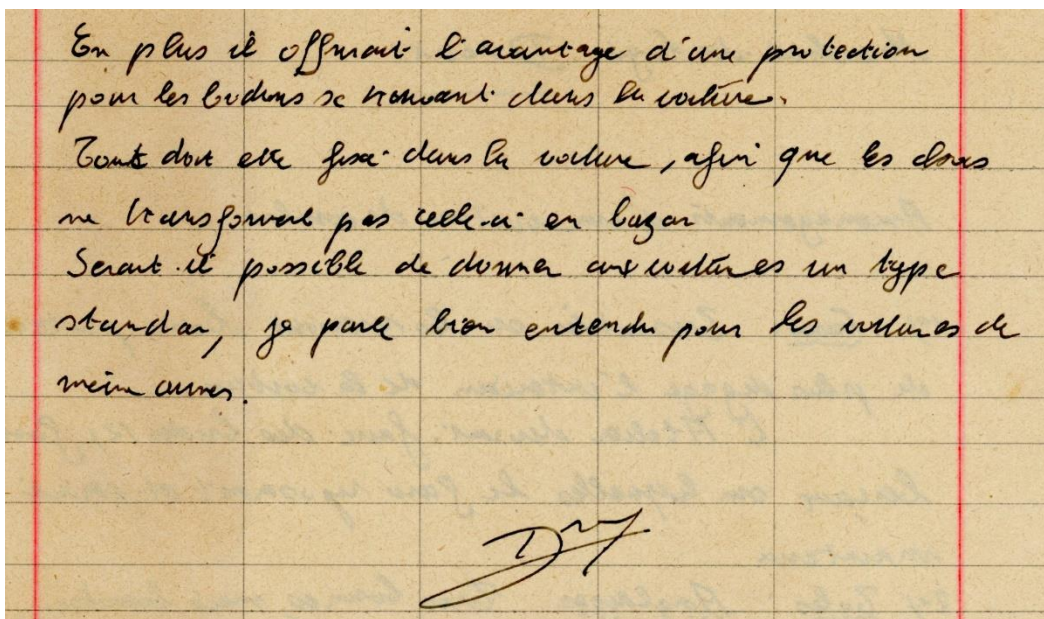 En plus il offrirait l'avantage d'une protection
pour les bidons se trouvant dans la voiture.
Tout doit etre fixé dans la voiture, afin que les chocs
ne transforment pas celle-ci en bazar
Serait-il possible de donner aux voitures un type
standar, je parle bien entendu pour les voitures de
même armes.